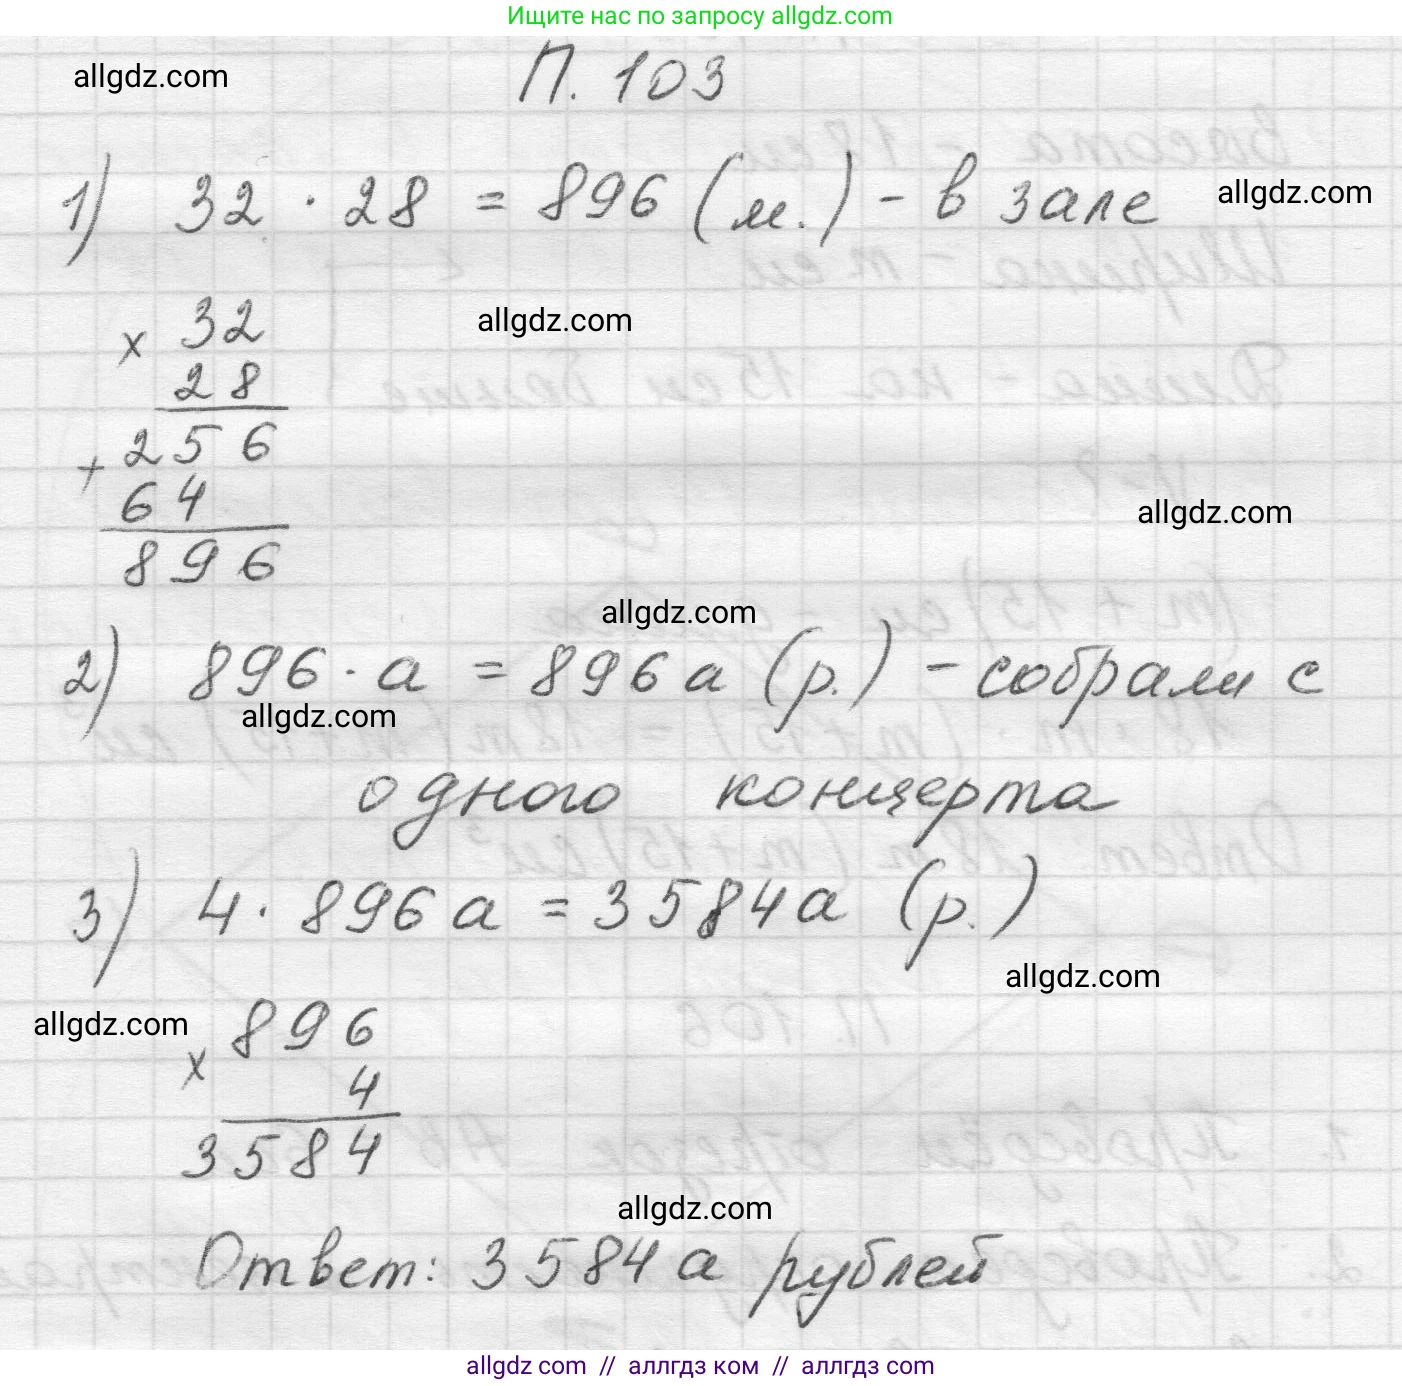 Ищите нас по запросу allgdz.com
allgdz.com
П. 103
1) 32 · 28 = 896 (м.) - в зале
allgdz.com
× 32
28
allgdz.com
+ 256
64
896
allgdz.com
allgdz.com
2) 896 · а = 896 а (р.) - собрали с
allgdz.com
одного концерта
3) 4 · 896 а = 3584 а (р.)
allgdz.com
allgdz.com
× 896
4
3584
allgdz.com
Ответ: 3584 а рублей
allgdz com // аллгдз ком // allgdz com